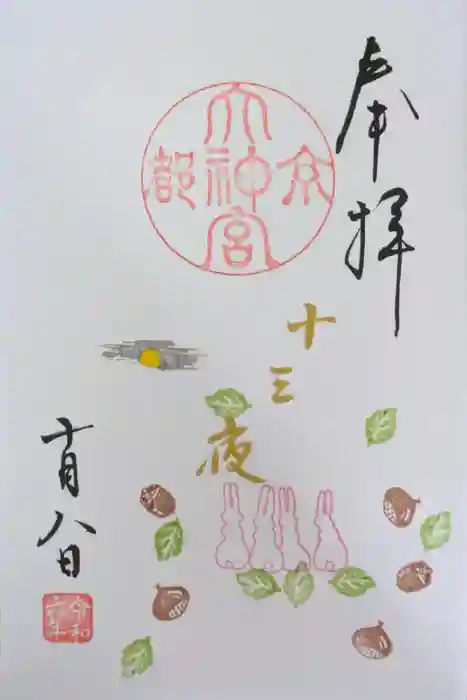 奉拝
京都
大神宮
十三夜
十月八日
令和